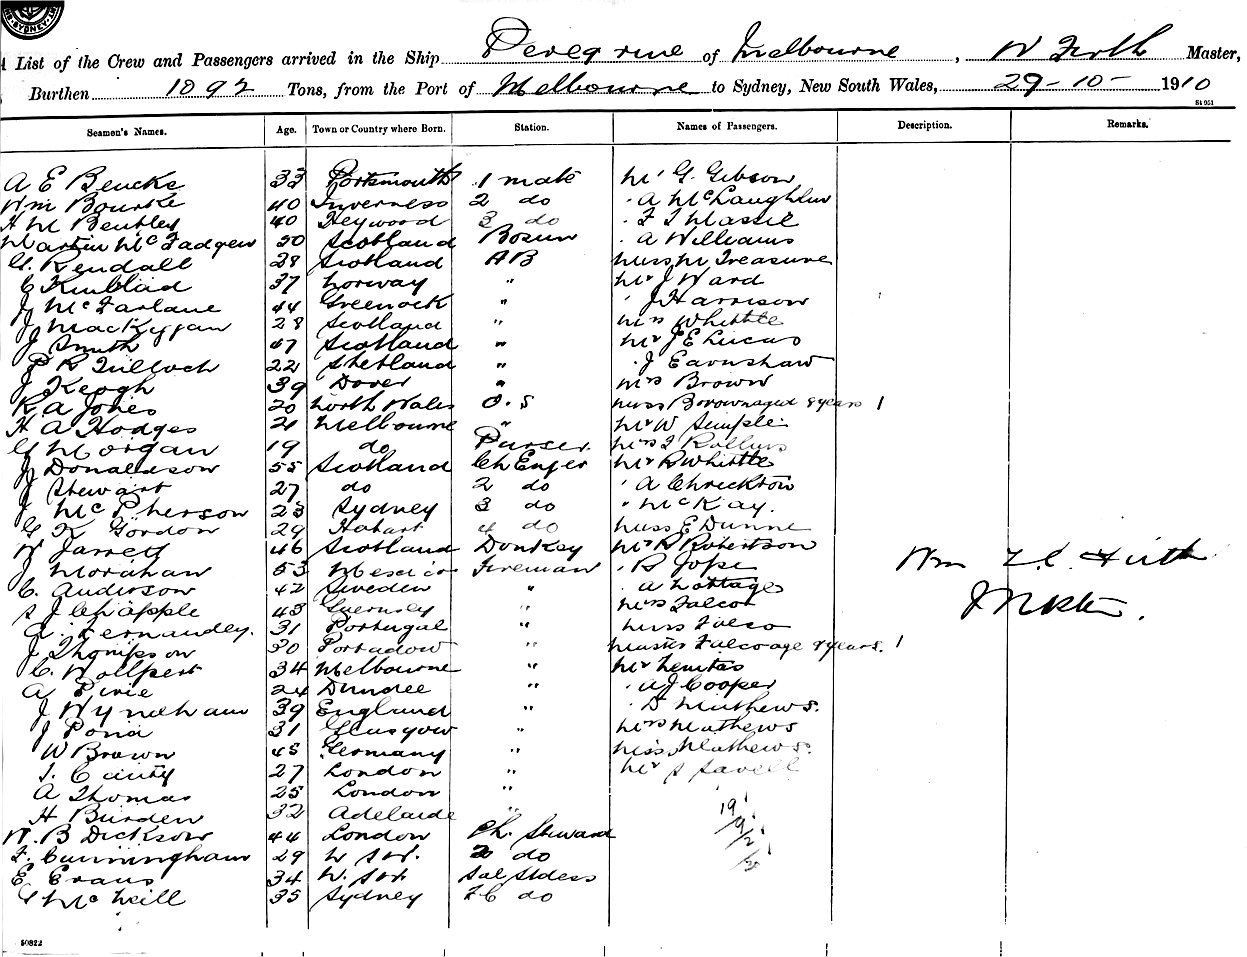 SYDNEY
List of the Crew and Passengers arrived in the Ship Peregrine of Melbourne, W Firth Master,
Burthen 1892 Tons, from the Port of Melbourne to Sydney, New South Wales, 29-10- 1910
St 951
Seamen's Names. Age. Town or Country where Born. Station. Names of Passengers. Description. Remarks.
A E Beucke 33 Portsmouth 1 mate Mr G. Gibson
Wm Bourke 40 Inverness 2 do " A McLaughlin
H M Bentley 40 Heywood 3 do " F T Massie
Martin McFadgen 50 Scotland Bosun " A Williams
G. Kendall 28 Scotland AB Miss M Treasure
C 37 Norway " Mr J Ward
J McFarlane 44 Greenock " " J Harrison
J 28 Scotland " Mrs Whittle
J Smith 47 Scotland " Mr J E Lucas
P R Tulloch 22 Shetland " " J Earnshaw
J Keogh 39 Dover " Mrs Brown
R A Jones 20 North Wales O.S Miss Brown aged 8 years 1
H A Hodges 21 Melbourne " Mr W Semple
G Morgan 19 do Purser Mrs J Rollins
J Donaldson 55 Scotland Ch Enger Mr R Whittle
J Stewart 27 do 2 do " A
J McPherson 23 Sydney 3 do " McKay.
G K Gordon 29 Hobart 4 do Miss E Dunne
W Jarrett 46 Scotland Donkey Mr R Robertson
J Morahan 53 Mexico Fireman " R Jope
C. Anderson 42 Sweden " " A Lottage
S J Chapple 43 Guernsey " Mrs Falco
A. Fernandey. 31 Portugal " Miss Falco
J Thompson 30 Portadown " Master Falco age 8 years. 1
C. Wollpert 34 Melbourne " Mr
A Pirie 24 Dundee " " A J Cooper
J Wyndham 39 England " " D Mathews.
J Pond 31 Glasgow " Mrs Mathews
W Brown 45 Germany " Miss Mathews.
T. Canty 27 London " Mr S Savell
A Thomas 25 London "
H Burden 32 Adelaide "
W. B Dickson 44 London Ch. Steward
F. Cunningham 29 2 do
E Evans 34 Sal Stdess
G McNeill 35 Sydney F C do
Wm Firth
Master.
50822